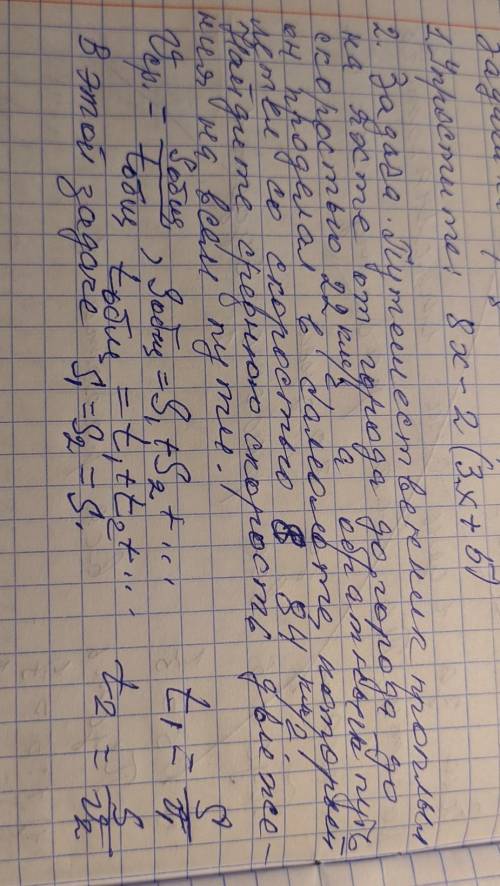 1. Упростите: 8x - 2(3x + 5)
2. Задача. Путешественник проплыл
на яхте от города до города до
скоростью 22 км/ч, а обратный путь
он проделал в самолёте, который
летел со скоростью 84 км/ч.
Найдите среднюю скорость движе-
ния на всём путе.
Vср. = Sобщ / tобщ, Sобщ = S₁ + S₂ + ... t₁ = S/V₁
tобщ = t₁ + t₂ + ... t₂ = S/V₂
В этой задаче S₁ = S₂ = S.